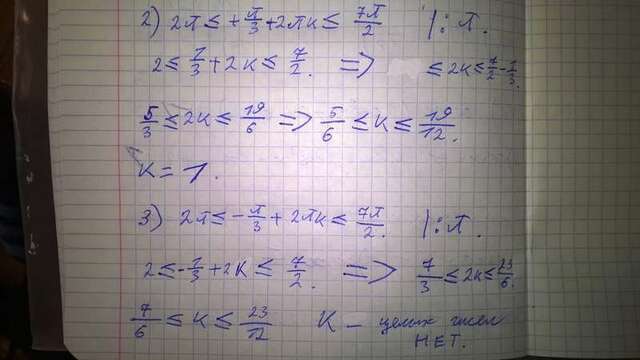 2) 2π ≤ +π/3 + 2πk ≤ 7π/2 | : π.
2 ≤ 1/3 + 2k ≤ 7/2. => ≤ 2k ≤ 7/2 - 1/3.
5/3 ≤ 2k ≤ 19/6 => 5/6 ≤ k ≤ 19/12.
k = 1.
3) 2π ≤ -π/3 + 2πk ≤ 7π/2. | : π.
2 ≤ -1/3 + 2k ≤ 7/2. => 7/3 ≤ 2k ≤ 23/6.
7/6 ≤ k ≤ 23/12 K – целых чисел
НЕТ.